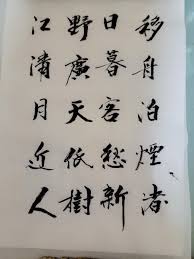 移舟泊煙渚
日暮客愁新
野廣天低樹
江清月近人